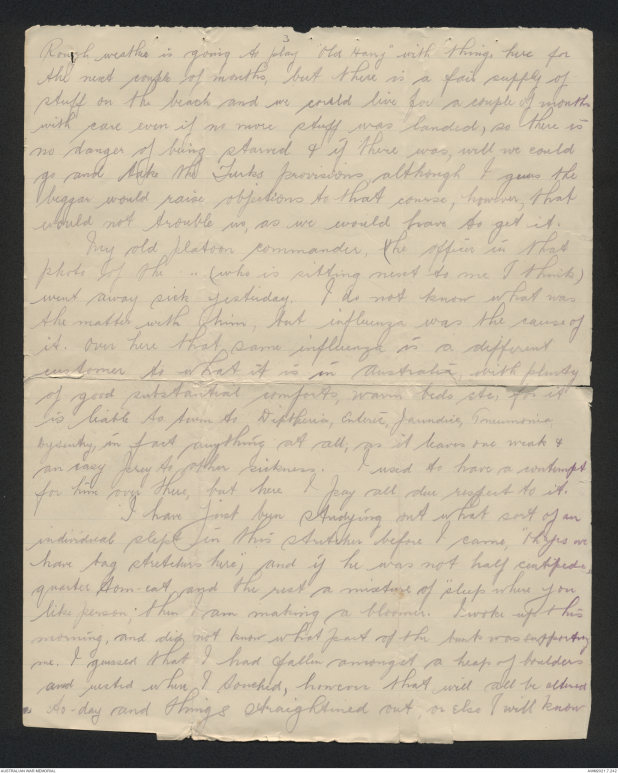 3
Rough weather is going to play "Old Harry" with things here for
the next couple of months, but there is a fair supply of
stuff on the beach and we could live for a couple of months
with care even if no more stuff was landed, so there is
no danger of being starved & if there was, well we could
go and take the Turks provisions, although I guess the
beggar would raise objections to that course, however, that
would not trouble us, as we would have to get it.
My old platoon commander, (the officer in that
photo of the .. (who is sitting next to me I think)
went away sick yesterday. I do not know what was
the matter with him, but influenza was the cause of
it. Over here that same influenza is a different
customer to what it is in Australia, with plenty
of good substantial comforts, warm beds etc, for it
is liable to turn to Diptheria, Enteric, Jaundice, Pneumonia,
Dysentry, in fact anything at all, as it leaves one weak &
an easy prey to other sickness. I used to have a contempt
for him over there, but here I pay all due respect to it.
I have just been studying out what sort of an
individual slept in this stretcher before I came, "Perhaps we
have bag stretchers here", and if he was not half centipede,
quarter Tom-cat and the rest a mixture of "sleep where you
like person", then I am making a bloomer. I woke up this
morning, and did not know what part of the bunk was supporting
me. I guessed that I had fallen amongst a heap of boulders
and rested where I touched, however that will all be altered
to-day and things straightined out, or else I will know
AUSTRALIAN WAR MEMORIAL